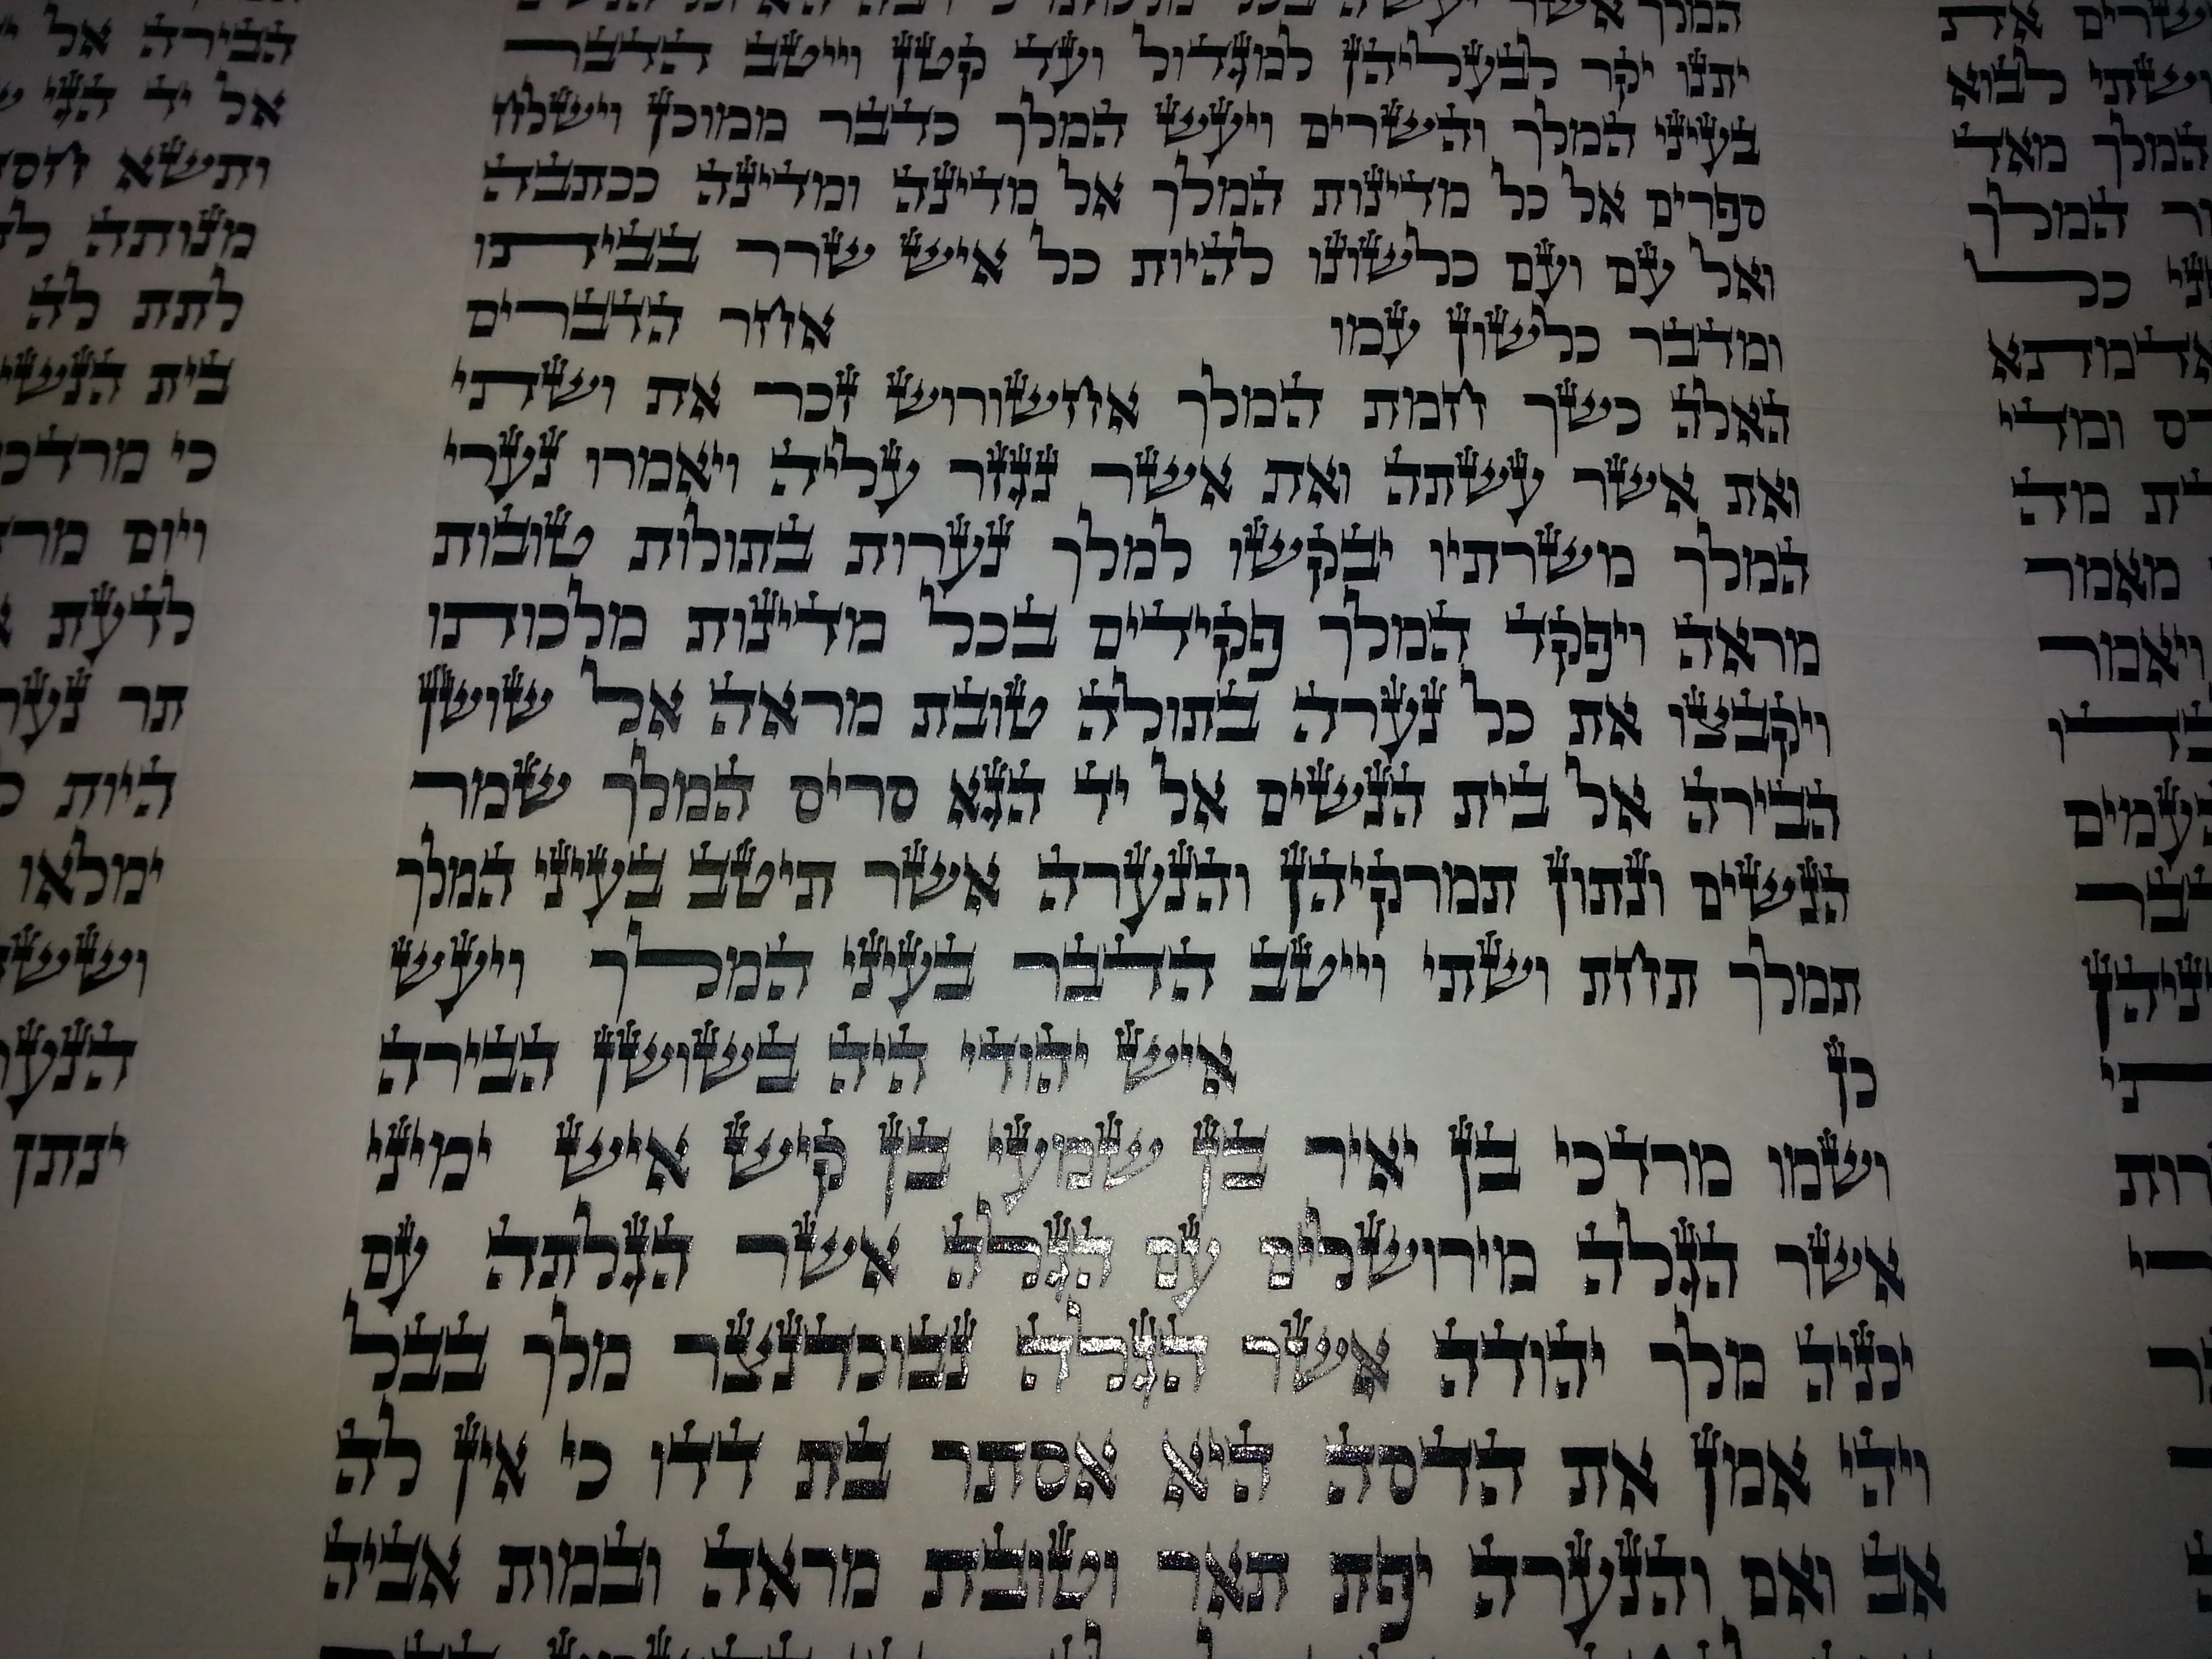 את
ושתי לבוא
המלך מאד
המלך
כל
ומדי
מה
מאמר
ויאמר
המלך אשר יעשה בכל
יתנו יקר לבעליהן למגדול ועד קטן וייטב הדבר
בעיני המלך והשרים ויעש המלך כדבר ממוכן וישלח
ספרים אל כל מדינות המלך אל מדינה ומדינה ככתבה
ואל עם ועם כלשונו להיות כל איש שרר בביתו
ומדבר כלשון עמו אחר הדברים
האלה כשך חמת המלך אחשורוש זכר את ושתי
ואת אשר עשתה ואת אשר נגזר עליה ויאמרו נערי
המלך משרתיו יבקשו למלך נערות בתולות טובות
מראה ויפקד המלך פקידים בכל מדינות מלכותו
ויקבצו את כל נערה בתולה טובת מראה אל שושן
הבירה אל בית הנשים אל יד הגא סריס המלך שמר
הנשים ונתון תמרקיהן והנערה אשר תיטב בעיני המלך
תמלך תחת ושתי וייטב הדבר בעיני המלך ויעש
כן איש יהודי היה בשושן הבירה
ושמו מרדכי בן יאיר בן שמעי בן קיש איש ימיני
אשר הגלה מירושלים עם הגלה אשר הגלתה עם
יכניה מלך יהודה אשר הגלה נבוכדנצר מלך בבל
ויהי אמן את הדסה היא אסתר בת דדו כי אין לה
אב ואם והנערה יפת תאר וטובת מראה ובמות אביה
הבירה אל
אל יד הגי
ותשא
מנותה
לתת לה
בית
כי
ויום
לדעת
תר
היות
ימלאו
ינתן